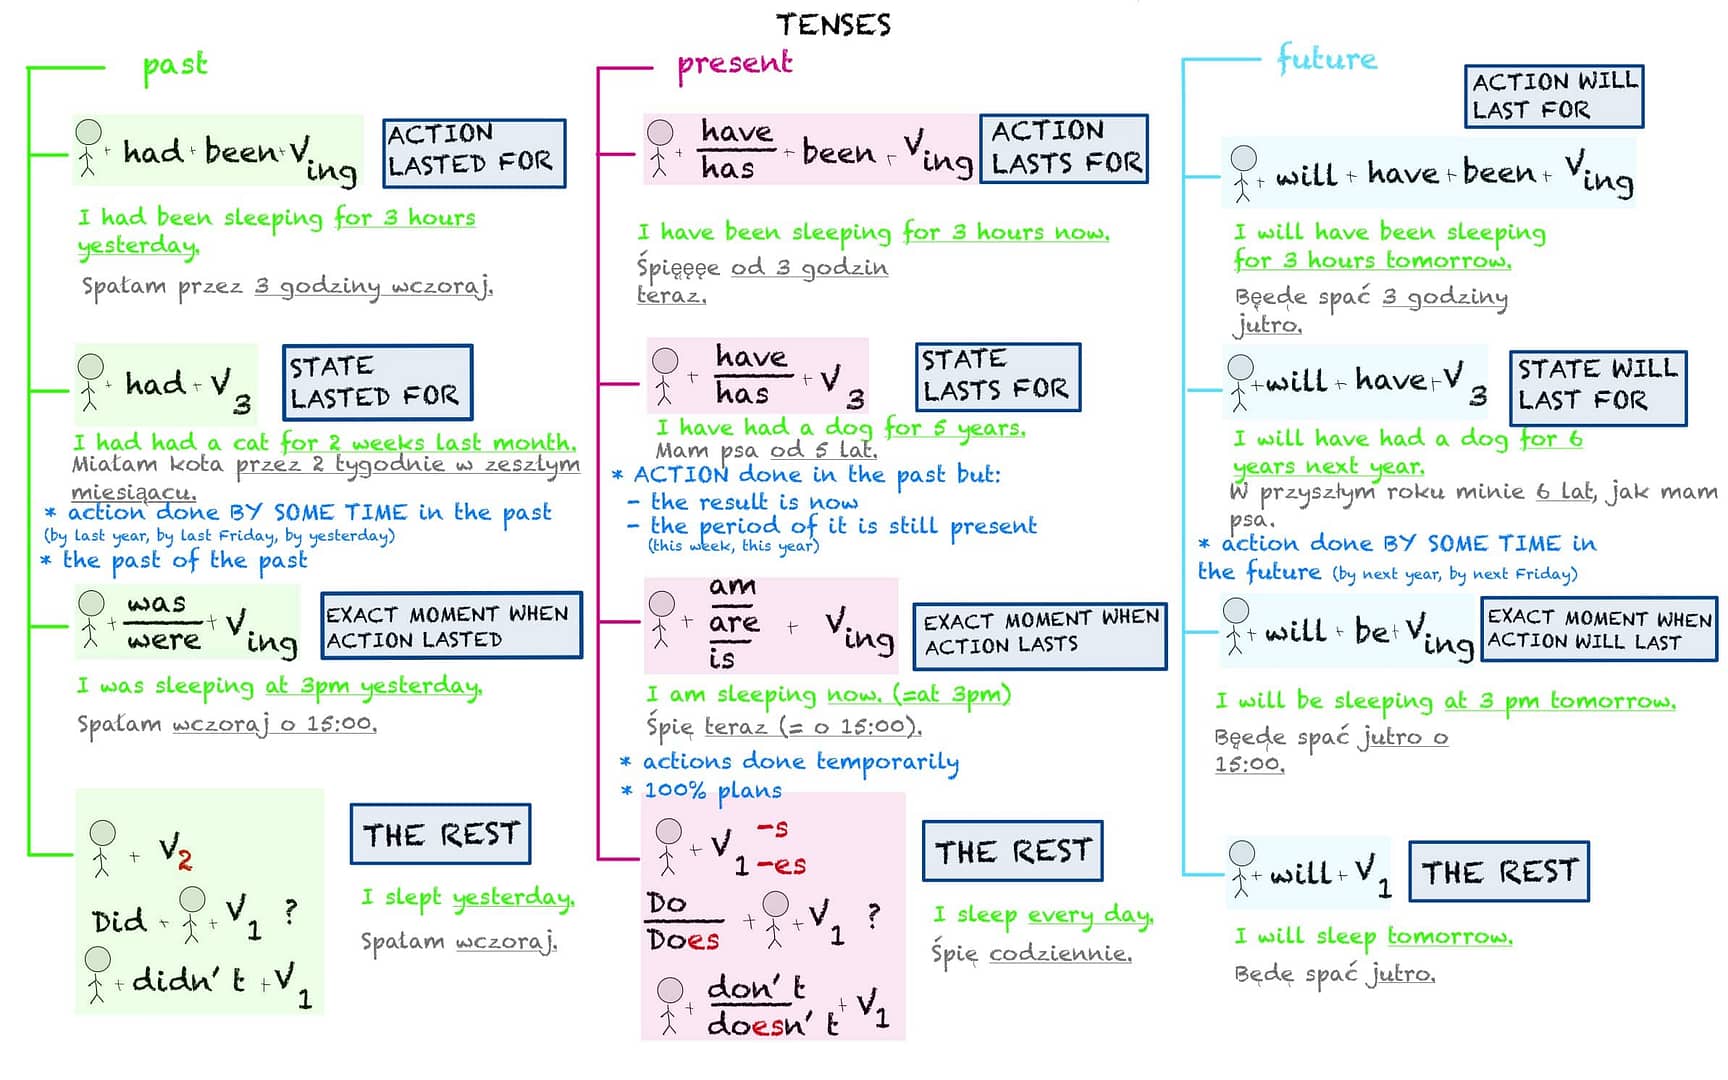 TENSES
past
had + been + Ving
ACTION
LASTED FOR
I had been sleeping for 3 hours
yesterday.
Spałam przez 3 godziny wczoraj.
had + V3
STATE
LASTED FOR
I had had a cat for 2 weeks last month.
Miałam kota przez 2 tygodnie w zeszłym
miesiąacu.
* action done BY SOME TIME in the past
(by last year, by last Friday, by yesterday)
* the past of the past
+ was
were + Ving
EXACT MOMENT WHEN
ACTION LASTED
I was sleeping at 3pm yesterday.
Spałam wczoraj o 15:00.
+ V2
THE REST
Did + + V1 ?
+ didn't + V1
I slept yesterday.
Spałam wczoraj.
present
+ have
has + been + Ving
ACTION
LASTS FOR
I have been sleeping for 3 hours now.
Śpięęęe od 3 godzin
teraz.
+ have
has + V3
STATE
LASTS FOR
I have had a dog for 5 years.
Mam psa od 5 lat.
* ACTION done in the past but:
- the result is now
- the period of it is still present
(this week, this year)
am
+ are + Ving
is
EXACT MOMENT WHEN
ACTION LASTS
I am sleeping now. (=at 3pm)
Śpię teraz (= o 15:00).
* actions done temporarily
* 100% plans
+ V1 -s
-es
THE REST
Do
Does + + V1 ?
+ don't
doesn't + V1
I sleep every day.
Śpię codziennie.
future
ACTION WILL
LAST FOR
+ will + have + been + Ving
I will have been sleeping
for 3 hours tomorrow.
Bęede spać 3 godziny
jutro.
+ will + have + V3
STATE WILL
LAST FOR
I will have had a dog for 6
years next year.
W przyszłym roku minie 6 lat, jak mam
psa.
* action done BY SOME TIME in
the future (by next year, by next Friday)
+ will + be + Ving
EXACT MOMENT WHEN
ACTION WILL LAST
I will be sleeping at 3 pm tomorrow.
Bęede spać jutro o
15:00.
+ will + V1
THE REST
I will sleep tomorrow.
Będę spać jutro.